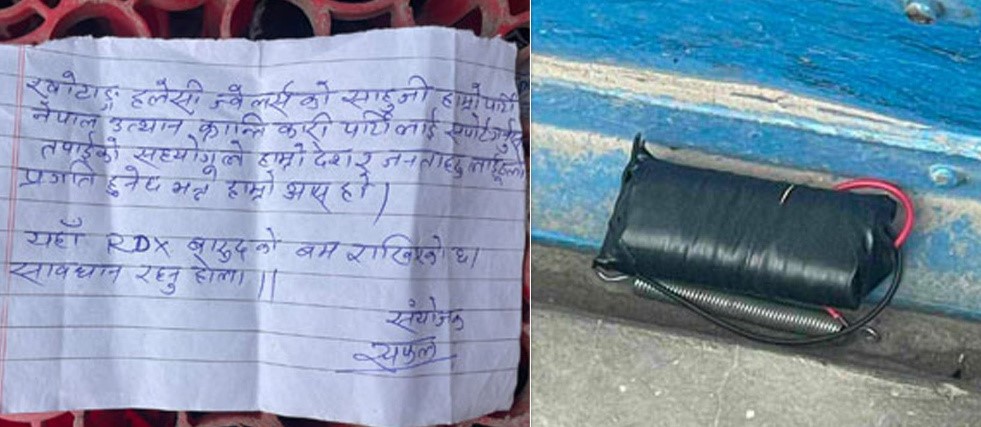 खोटाङ्ग हलेसी ज्वेलर्सको साहुजी हाम्रो पार्टी
नेपाल उत्थान क्रान्तिकारी पार्टीलाई सपोर्ट गर्नुहोस
तपाईको सहयोगले हाम्रो देश र जनताहरुलाई
प्रगति हुनेछ भन्ने हाम्रो आस हो।
यहाँ RDX बारुदको बम राखिएको छ।
सावधान रहनु होला।।
संयोजक